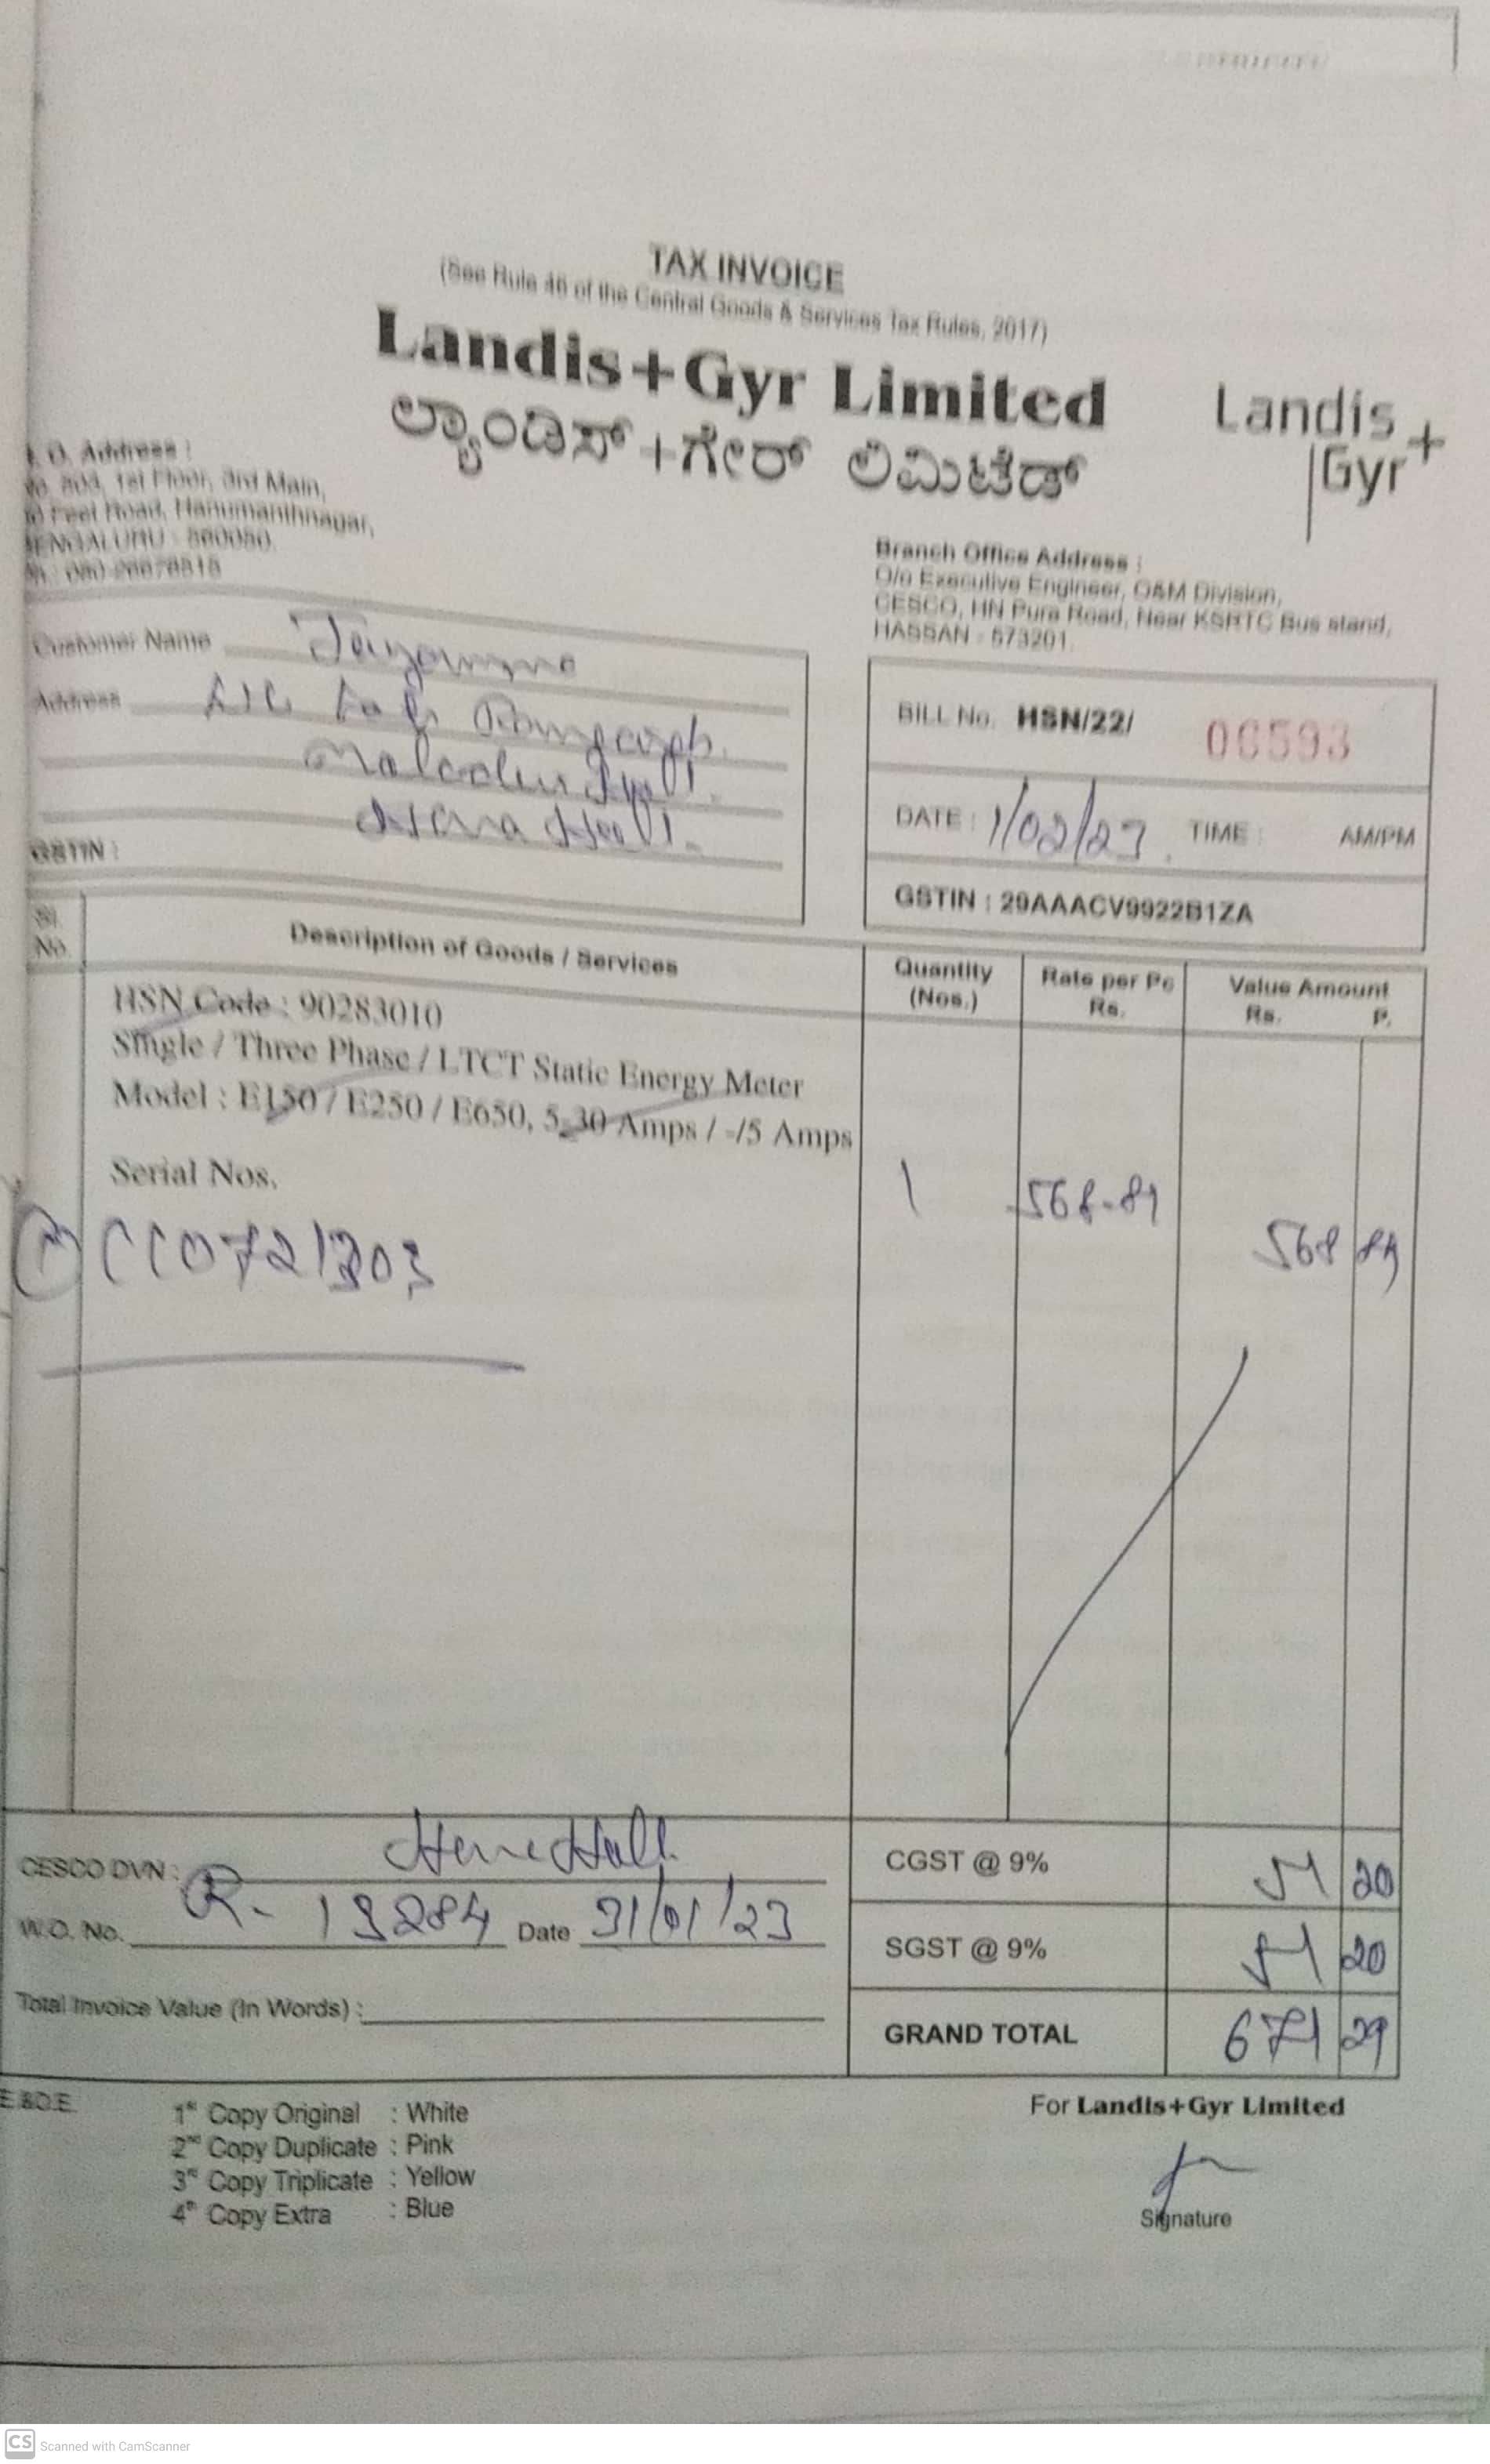 TAX INVOICE
(See Rule 46 of the Central Goods & Services Tax Rules, 2017)
Landis+Gyr Limited
ಲ್ಯಾಂಡಿಸ್+ಗೇರ್ ಲಿಮಿಟೆಡ್
Landis
Gyr+
Address :
1st Floor, 3rd Main,
Feet Road, Hanumanthnagar,
BENGALURU - 560050.
Branch Office Address :
O/o Executive Engineer, O&M Division,
CESCO, HN Pura Road, Near KSRTC Bus stand,
HASSAN - 573201.
Customer Name Jayamma
Address
GSTIN :
BILL No. HSN/22/ 06593
DATE : 1/02/23 TIME : AM/PM
GSTIN : 29AAACV9922B1ZA
Sl. No. Description of Goods / Services Quantity (Nos.) Rate per Pc Rs. Value Amount Rs. P.
HSN Code : 90283010
Single / Three Phase / LTCT Static Energy Meter
Model : E150 / E250 / E650, 5-30 Amps / -/5 Amps
Serial Nos.
1 568-89 568 89
CESCO DVN :
W.O. No. R- 19284 Date 31/01/23
Total Invoice Value (In Words) :
CGST @ 9% 51 20
SGST @ 9% 51 20
GRAND TOTAL 671 29
E.&O.E.
1st Copy Original : White
2nd Copy Duplicate : Pink
3rd Copy Triplicate : Yellow
4th Copy Extra : Blue
For Landis+Gyr Limited
Signature
CS Scanned with CamScanner